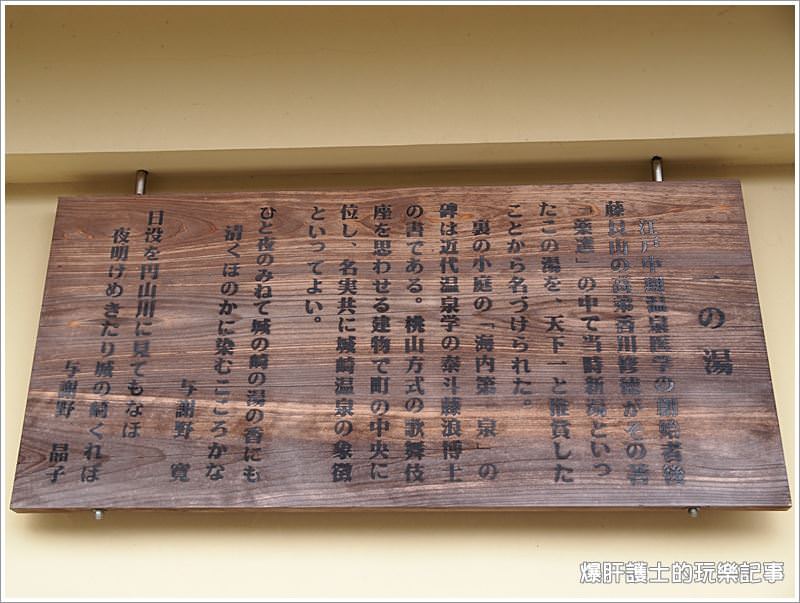 一の湯
江戸中期温泉医学の創始者後
藤艮山の高弟香川修徳がその著
「薬選」の中で当時新湯といっ
たこの湯を、天下一と推賞した
ことから名づけられた。
裏の小庭の「海内第一泉」の
碑は近代温泉学の泰斗藤浪博士
の書である。桃山方式の歌舞伎
座を思わせる建物で町の中央に
位し、名実共に城崎温泉の象徴
といってよい。
ひと夜のみねて城の崎の湯の香にも
清くほのかに染むこころかな
与謝野 寛
日没を円山川に見てもなほ
夜明けめきたり城の崎くれば
与謝野 晶子
爆肝護士的玩樂記事